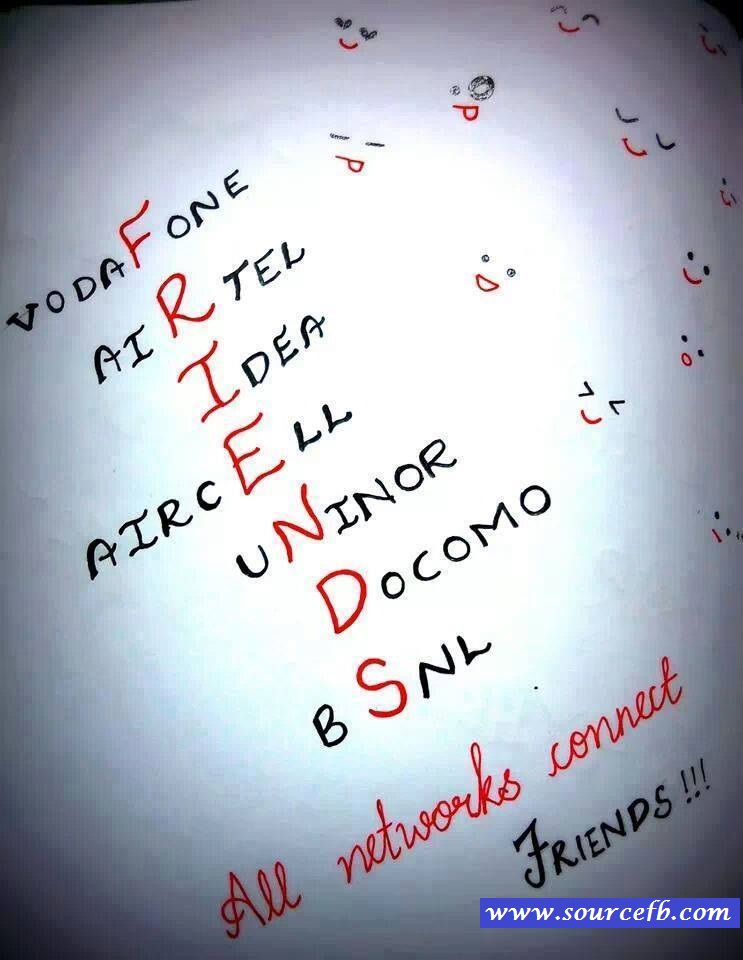 VODAFONE
AIRTEL
IDEA
AIRCELL
UNINOR
DOCOMO
BSNL
All networks connect
FRIENDS!!!
www.sourcefb.com